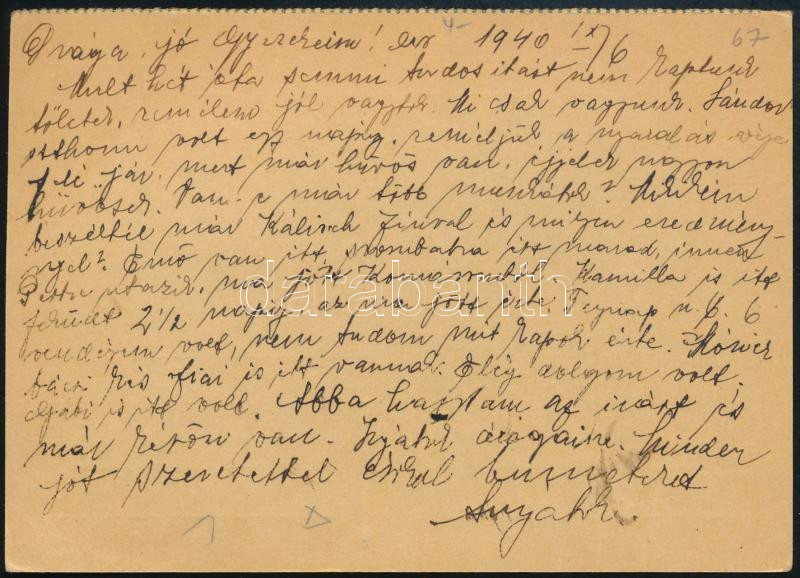 Drága, jó Gyerekeim! 1940 IX/6 67
Mult hét óta semmi tudositást nem kaptunk
töletek, remélem jól vagytok. Mi csak vagyunk. Sándor
itthonn volt egy napig, reméljük a nyaralás vége
felé jár, mert már hüvös van, éjjelek nagyon
hüvösek. Van-e már több munkátok?
beszéltél már Kálisch Zinval és milyen eredmény-
nyel? Ernö van itt szombatra itt marad, innen
Pestre utazik, ma jött Komaromból. Kamilla is itt
2 1/2 napig az ura jött érte. Tegnap n. C. 6
vendégem volt, nem tudom mit kapok érte. Móricz
bácsi kis fiai is itt vannak. Elég dolgom volt.
Gabi is itt volt. Abba hagytam az irást és
már késön van. Irjatok drágáim. Minden
jót szeretettel csókol benneteket
Anyátok.
darabanth